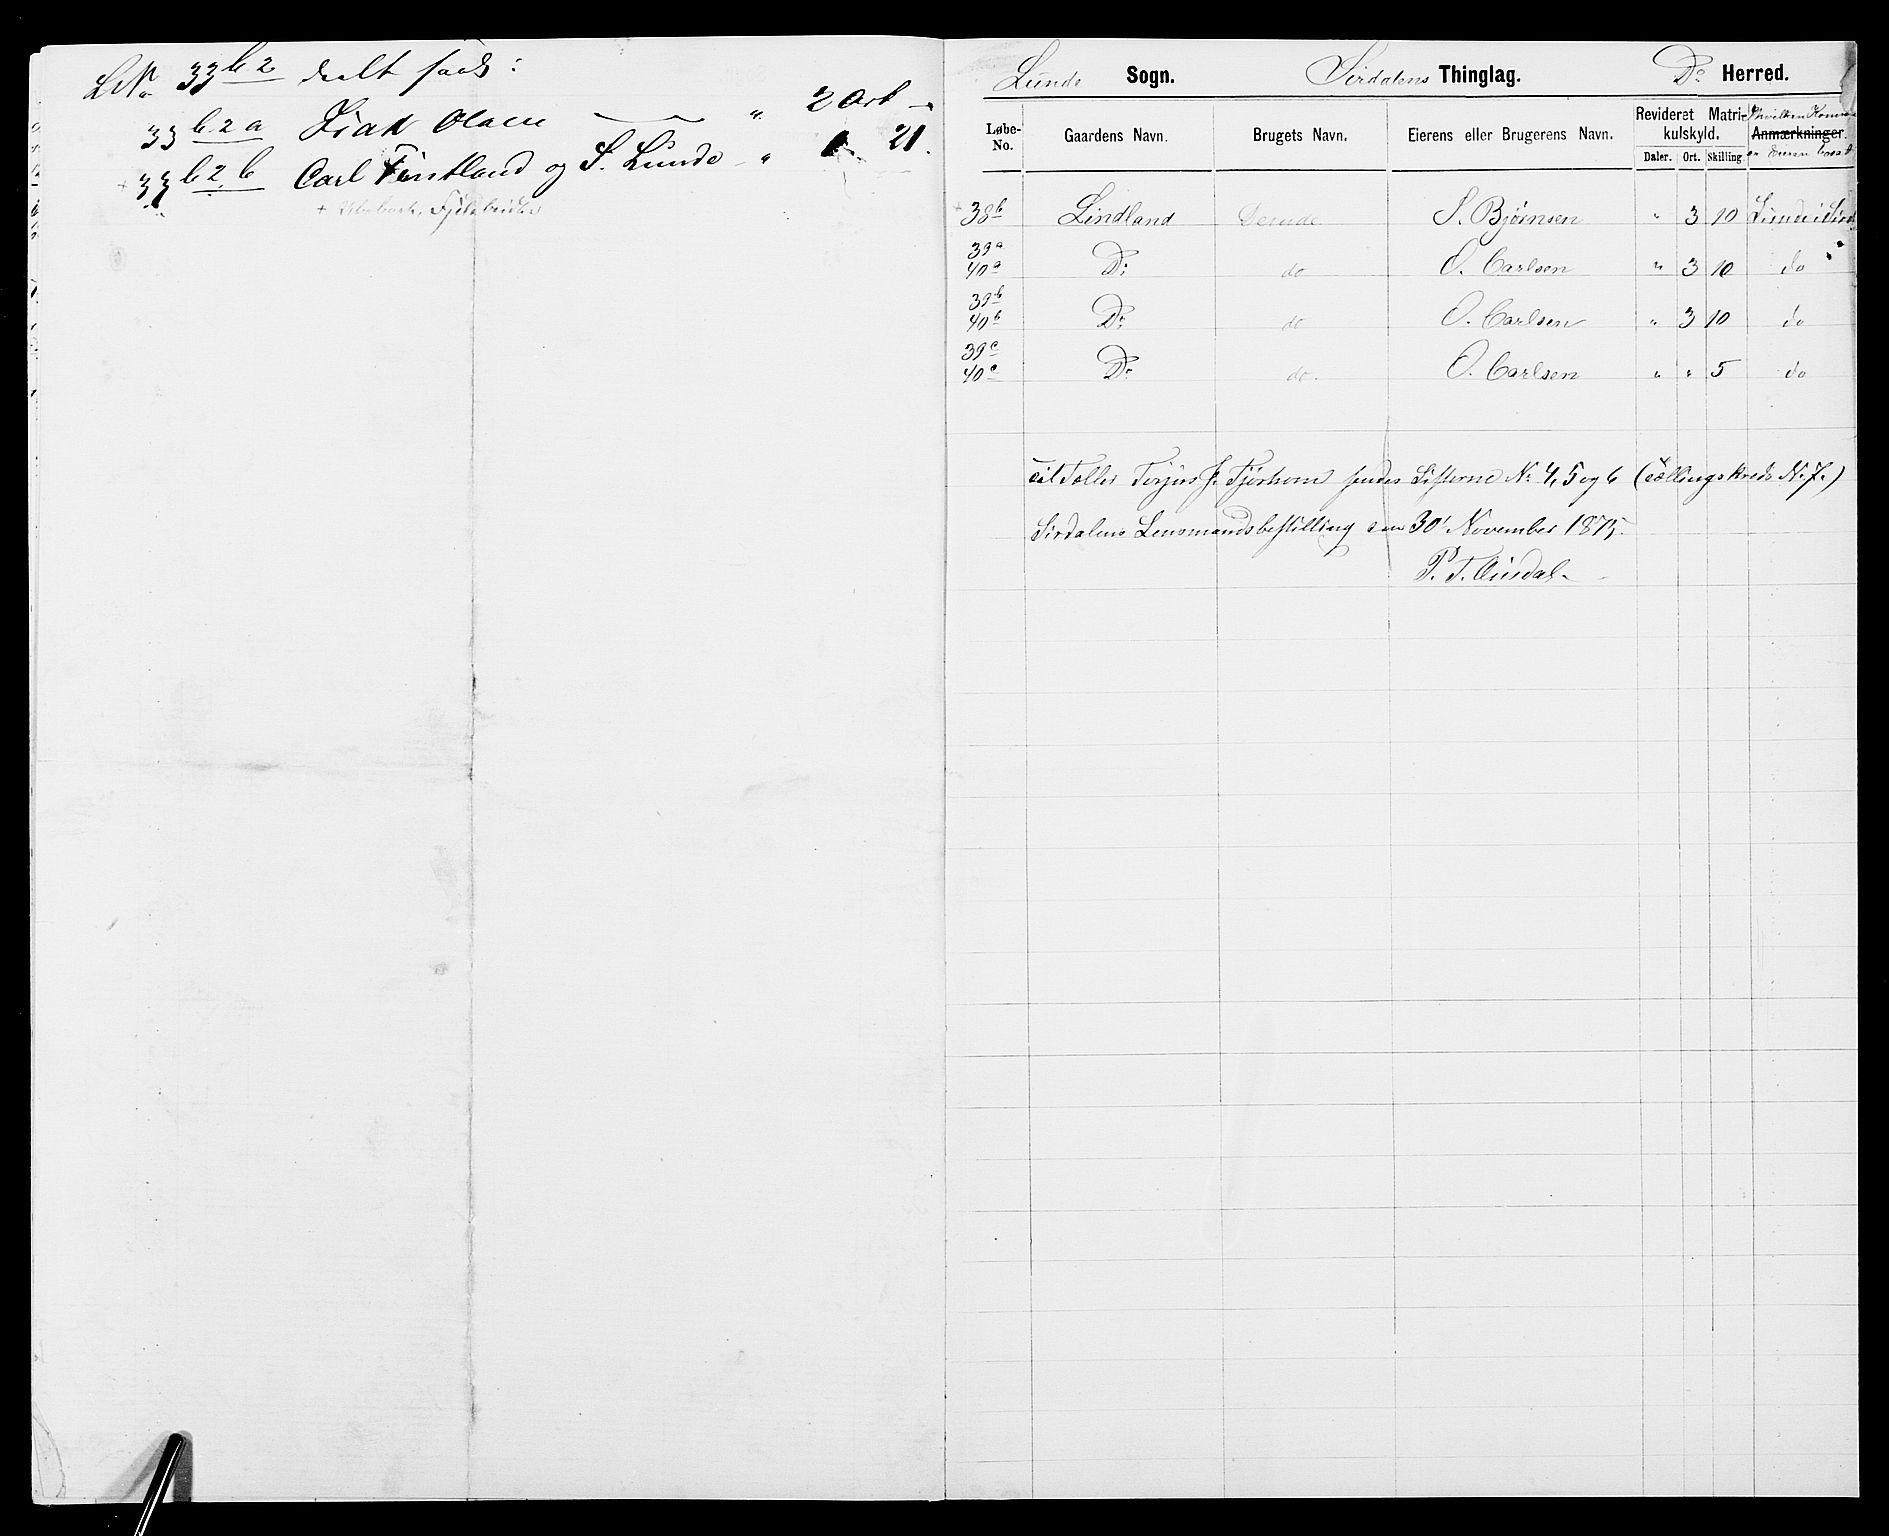 LNo 33 b 2 deelt saal:
33 b 2 a Isak Olsen " 2 Ort -
+ 33 b 2 b Carl Fintland og S. Lunde - " 21.
Lunde Sogn. Sirdalens Thinglag. Do Herred.
Løbe-No. Gaardens Navn. Brugets Navn. Eierens eller Brugerens Navn. Revideret Matrikulskyld. Daler. Ort. Skilling. Anmærkninger.
38 b Lindland S. Bjørnsen " 3 10 Lunde i
39 a 40 a Do do O. Carlsen " 3 10 do
39 b 40 b Do do O. Carlsen " 3 10 do
39 c 40 c Do do. O. Carlsen " " 5 do
Til Tæller Torjus J. Tjørhom sendes Listerne No 4, 5 og 6 (Tællingskreds No 7.)
Sirdalens Lensmandsbestilling den 30' November 1875.